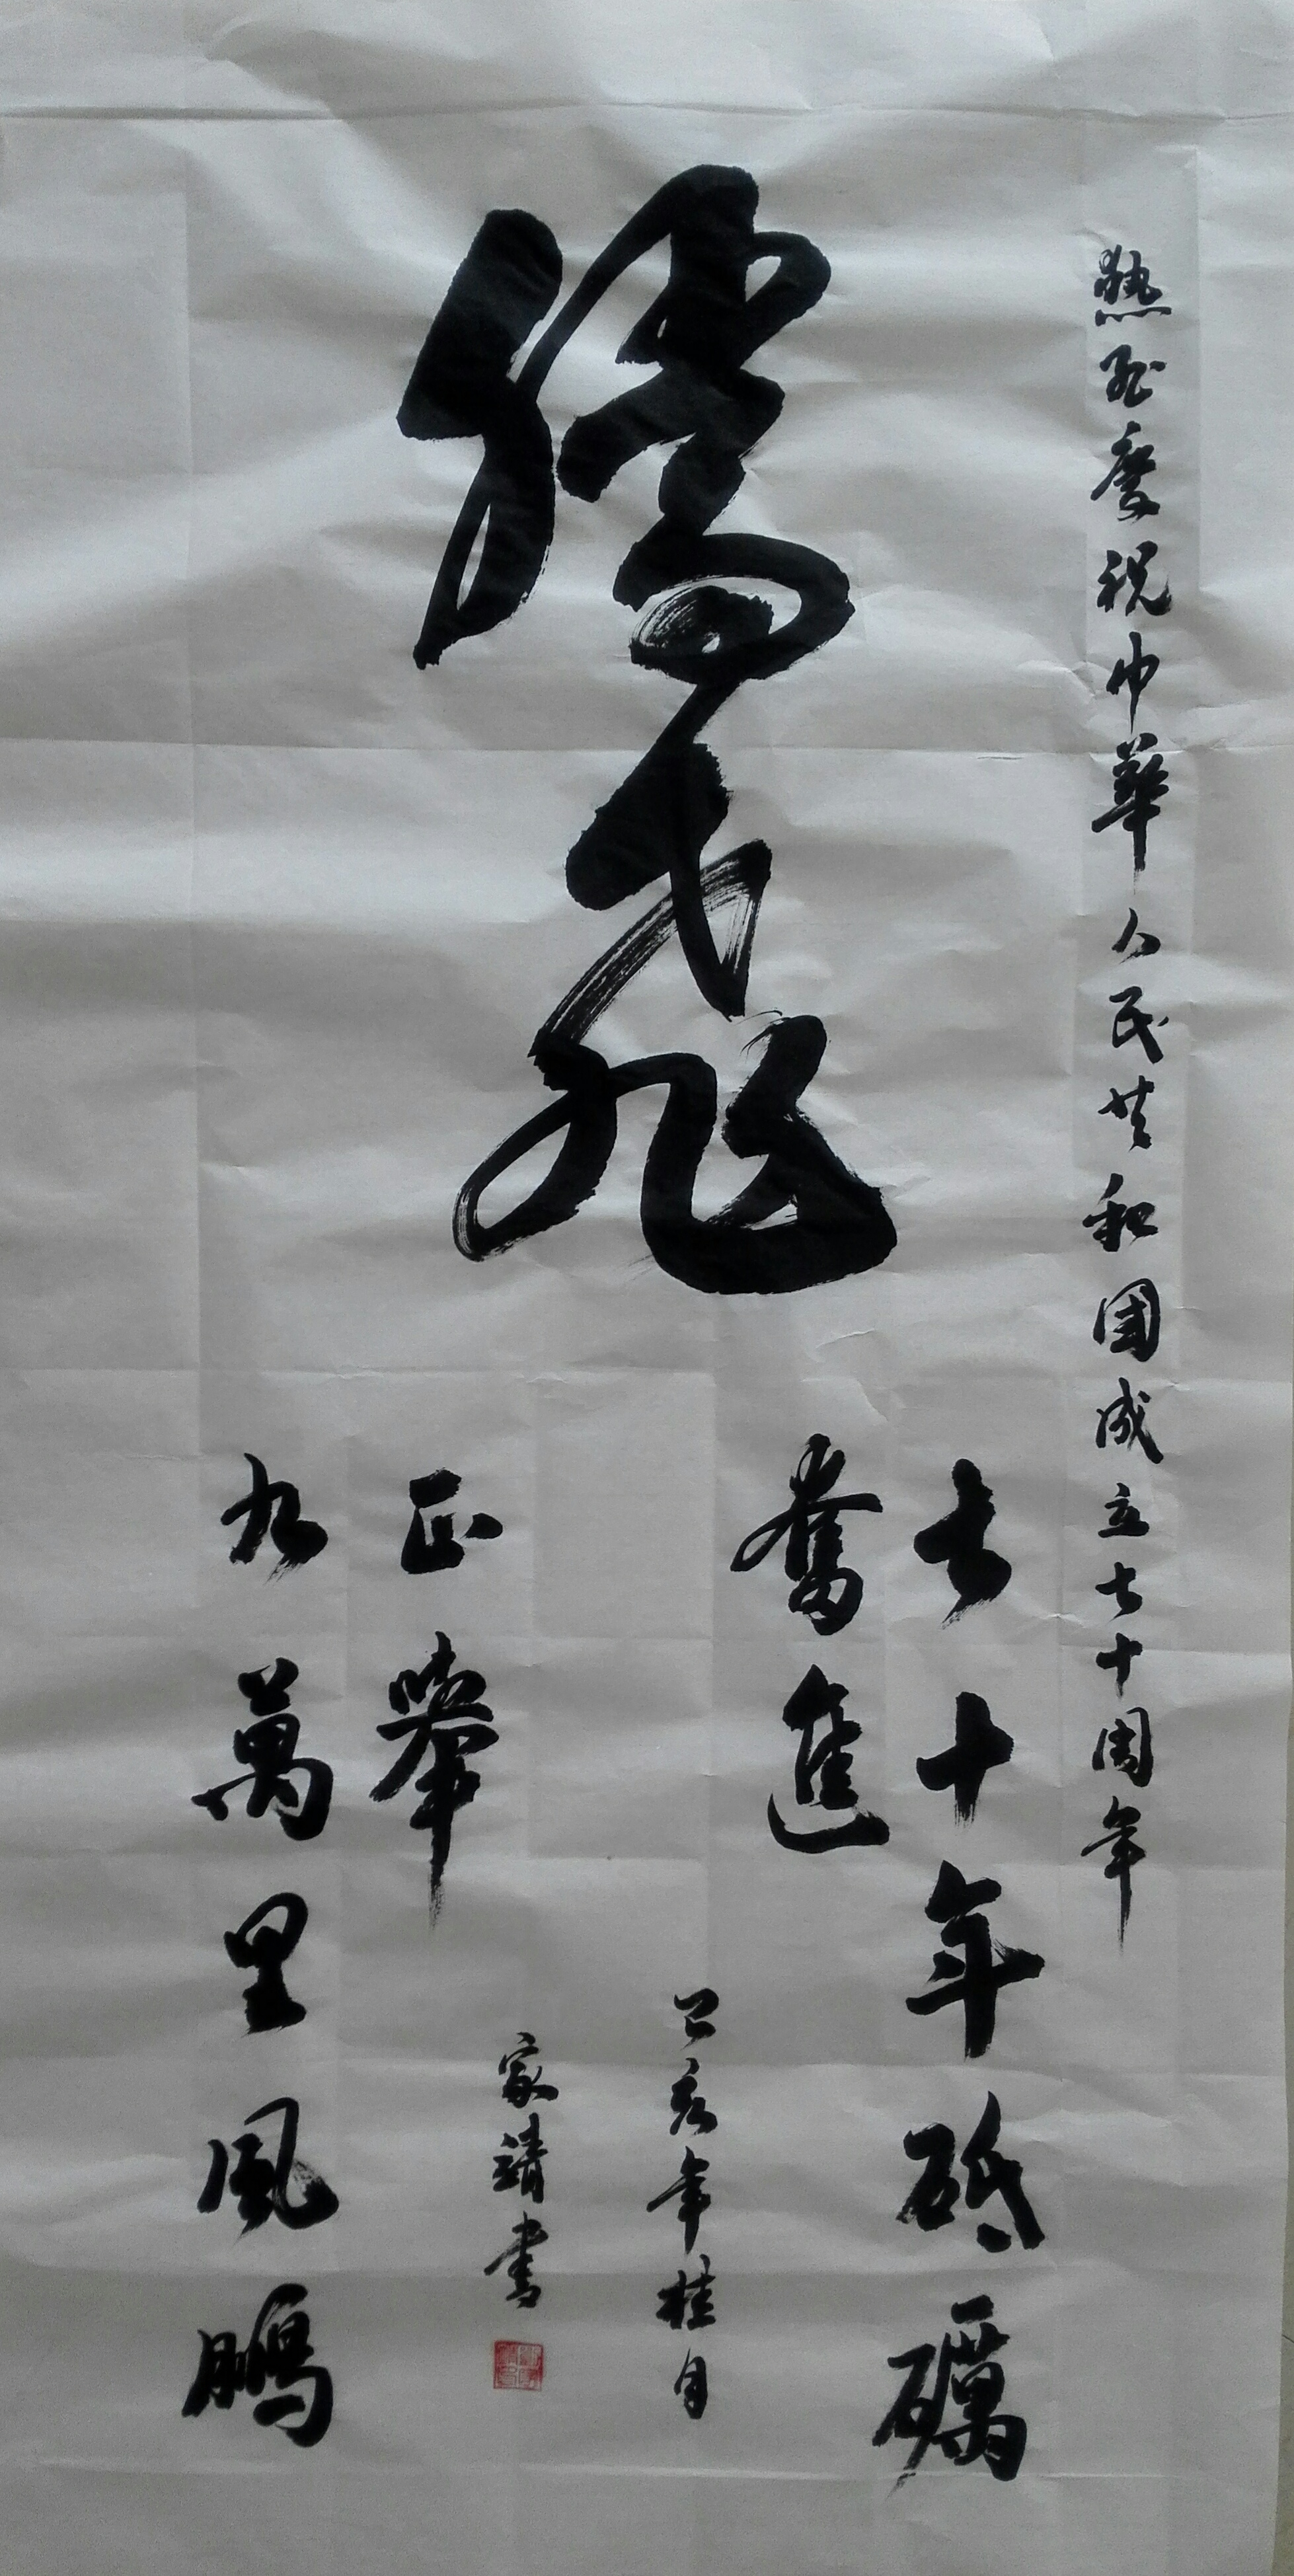 熱烈慶祝中華人民共和國成立七十周年
騰飛
七十年砥礪
奮進
己亥年桂月
家靖書
正舉
九萬里風鵬